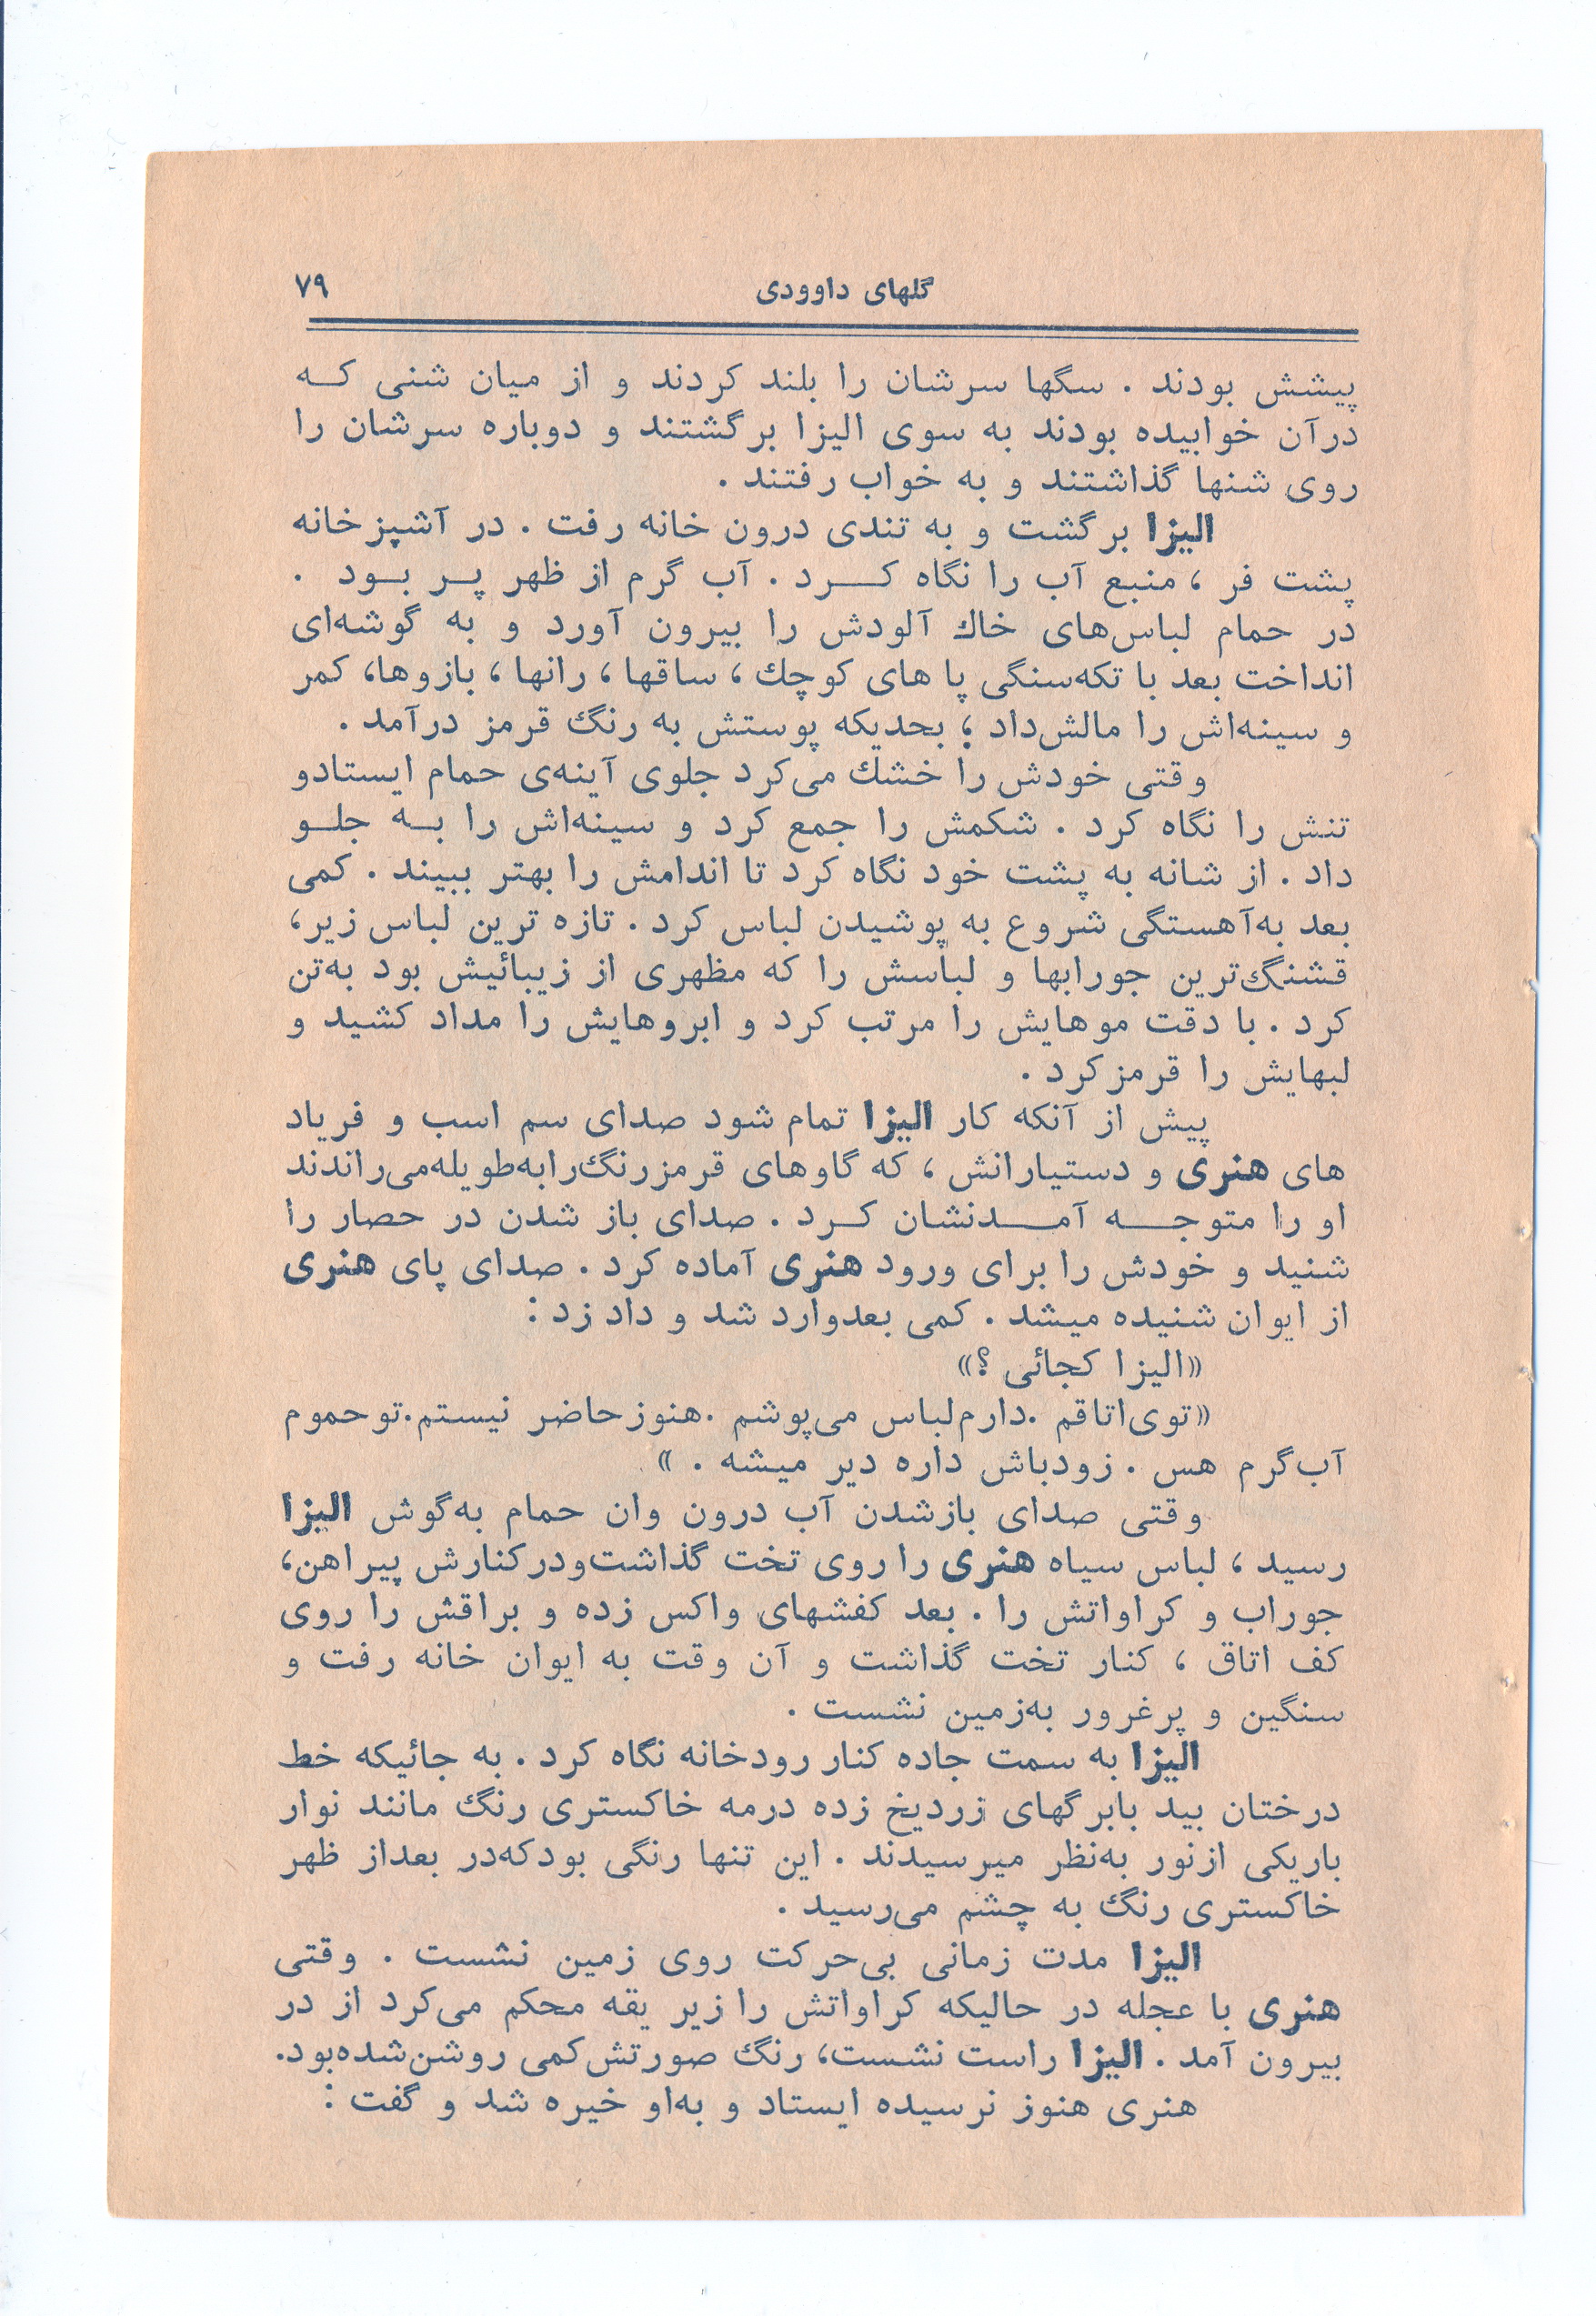 گلهای داوودی ۷۹
پیشش بودند . سگها سرشان را بلند کردند و از میان شنی کــه
درآن خوابیده بودند به سوی الیزا برگشتند و دوباره سرشان را
روی شنها گذاشتند و به خواب رفتند .
الیزا برگشت و به تندی درون خانه رفت . در آشپزخانه
پشت فر ، منبع آب را نگاه کــرد . آب گرم از ظهر پــر بــود .
در حمام لباس‌های خاك آلودش را بیرون آورد و به گوشه‌ای
انداخت بعد با تکه‌سنگی پا های کوچك ، ساقها ، رانها ، بازوها، کمر
و سینه‌اش را مالش‌داد ؛ بحدیکه پوستش به رنگ قرمز درآمد .
وقتی خودش را خشك می‌کرد جلوی آینه‌ی حمام ایستادو
تنش را نگاه کرد . شکمش را جمع کرد و سینه‌اش را بــه جلــو
داد . از شانه به پشت خود نگاه کرد تا اندامش را بهتر ببیند . کمی
بعد به‌آهستگی شروع به پوشیدن لباس کرد . تازه ترین لباس زیر،
قشنگ‌ترین جورابها و لباسش را که مظهری از زیبائیش بود به‌تن
کرد . با دقت موهایش را مرتب کرد و ابروهایش را مداد کشید و
لبهایش را قرمزکرد .
پیش از آنکه کار الیزا تمام شود صدای سم اسب و فریاد
های هنری و دستیارانش ، که گاوهای قرمزرنگ‌رابه‌طویله‌می‌راندند
او را متوجــه آمــدنشان کــرد . صدای باز شدن در حصار را
شنید و خودش را برای ورود هنری آماده کرد . صدای پای هنری
از ایوان شنیده میشد . کمی بعدوارد شد و داد زد :
«الیزا کجائی ؟»
«توی‌اتاقم .دارم‌لباس می‌پوشم .هنوزحاضر نیستم.توحموم
آب‌گرم هس . زودباش داره دیر میشه . »
وقتی صدای بازشدن آب درون وان حمام به‌گوش الیزا
رسید ، لباس سیاه هنری را روی تخت گذاشت‌ودرکنارش پیراهن،
جوراب و کراواتش را . بعد کفشهای واکس زده و براقش را روی
کف اتاق ، کنار تخت گذاشت و آن وقت به ایوان خانه رفت و
سنگین و پرغرور به‌زمین نشست .
الیزا به سمت جاده کنار رودخانه نگاه کرد . به جائیکه خط
درختان بید بابرگهای زردیخ زده درمه خاکستری رنگ مانند نوار
باریکی ازنور به‌نظر میرسیدند . این تنها رنگی بودکه‌در بعداز ظهر
خاکستری رنگ به چشم می‌رسید .
الیزا مدت زمانی بی‌حرکت روی زمین نشست . وقتی
هنری با عجله در حالیکه کراواتش را زیر یقه محکم می‌کرد از در
بیرون آمد . الیزا راست نشست، رنگ صورتش‌کمی روشن‌شده‌بود.
هنری هنوز نرسیده ایستاد و به‌او خیره شد و گفت :